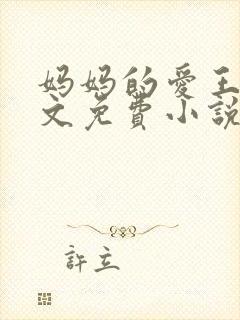 妈妈的爱王
文免费小說
許立